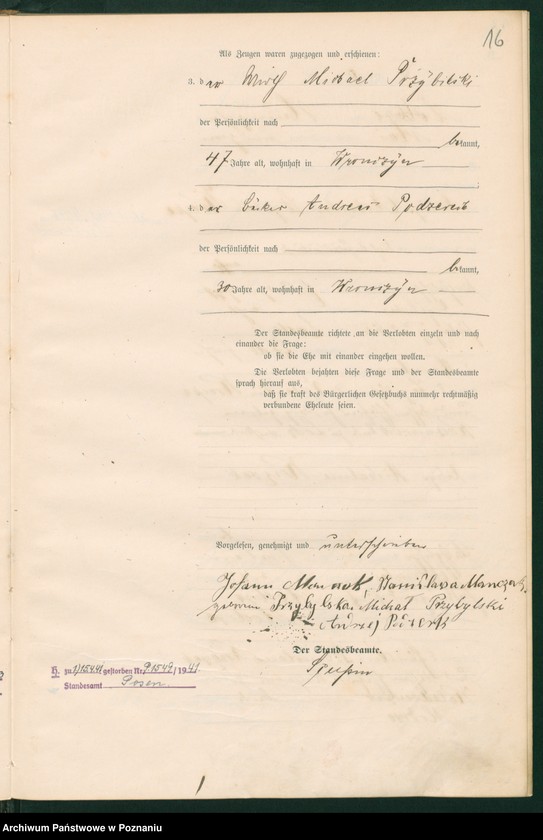 16
Als Zeugen waren zugezogen und erschienen:
3. der Wirth Michael Przybilski
der Persönlichkeit nach
bekannt,
47 Jahre alt, wohnhaft in Wronczyn
4. der Andreas
der Persönlichkeit nach
bekannt,
30 Jahre alt, wohnhaft in Wronczyn
Der Standesbeamte richtete an die Verlobten einzeln und nach
einander die Frage:
ob sie die Ehe mit einander eingehen wollen.
Die Verlobten bejahten diese Frage und der Standesbeamte
sprach hierauf aus,
daß sie kraft des Bürgerlichen Gesetzbuchs nunmehr rechtmäßig
verbundene Eheleute seien.
Vorgelesen, genehmigt und unterschrieben
Johann Stanisława
geborene Przybylska. Michał Przybylski
Andrzej
Der Standesbeamte.
H. zu 1) 1544 gestorben Nr. 1549/1941
Standesamt Posen
Archiwum Państwowe w Poznaniu